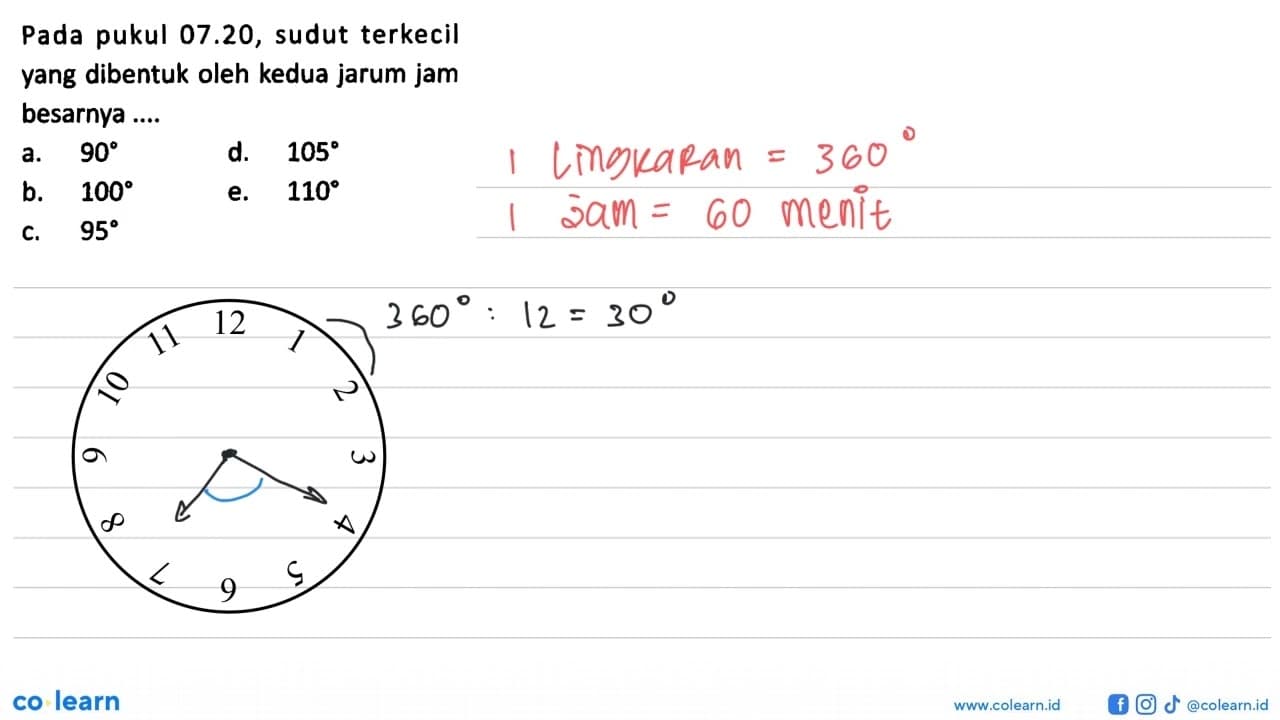 Pada pukul 07.20, sudut terkecil
yang dibentuk oleh kedua jarum jam
besarnya ....
a. 90° d. 105°
b. 100° e. 110°
c. 95°
1 lingkaran = 360°
1 Jam = 60 menit
360° : 12 = 30°
12
1
2
3
4
5
6
7
8
9
10
11
co learn
www.colearn.id
@colearn.id